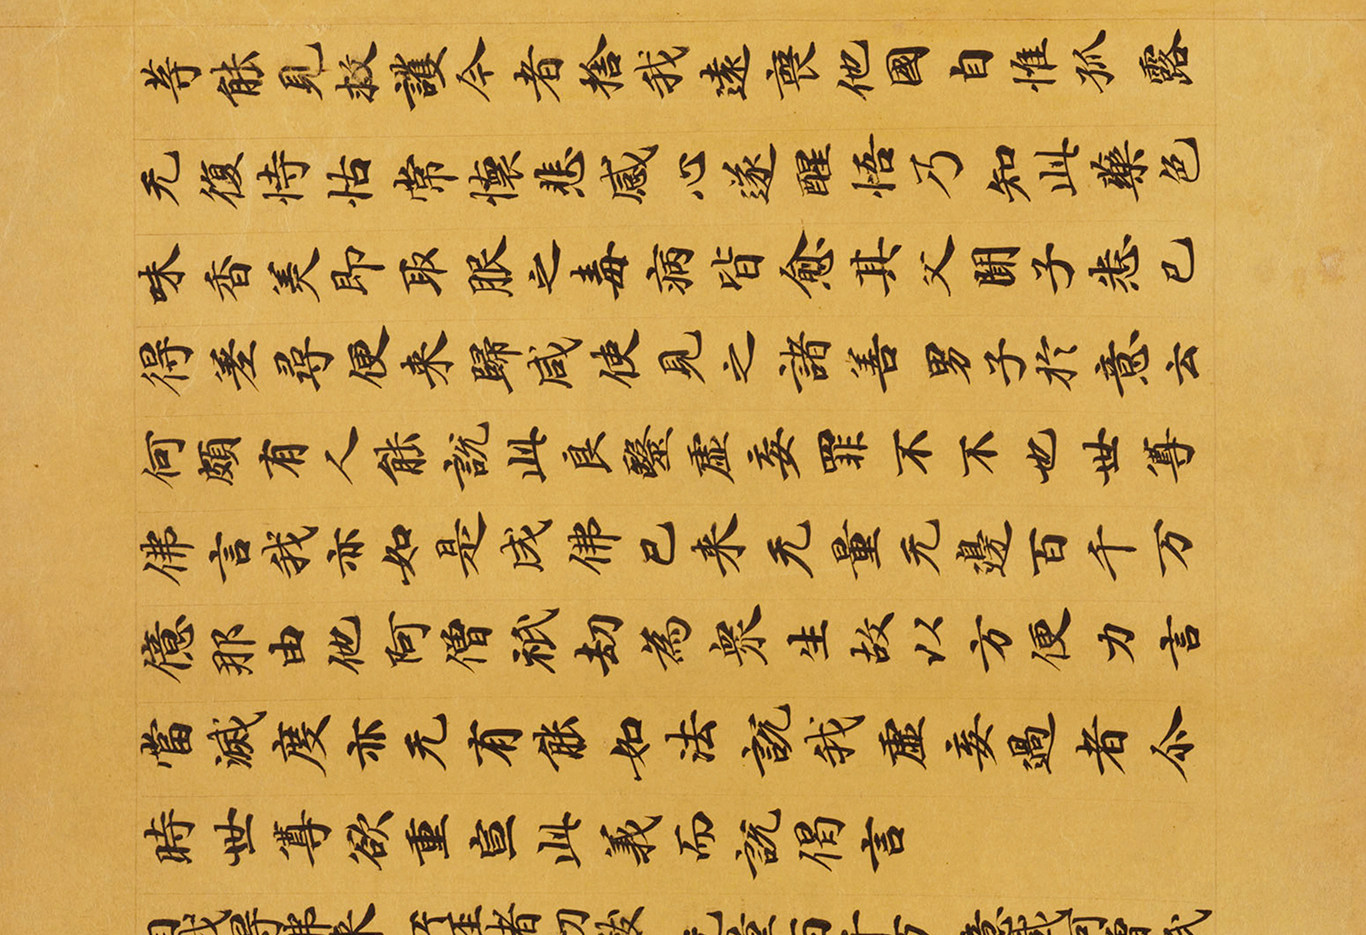 等能見救護今者捨我遠喪他國自惟孤露
无復恃怙常懷悲感心遂醒悟乃知此藥色
味香美即取服之毒病皆愈其父聞子悉已
得差尋便来歸咸使見之諸善男子於意云
何頗有人能說此良醫虛妄罪不不也世尊
佛言我亦如是成佛已来无量无邊百千万
億那由他阿僧祇劫為衆生故以方便力言
當滅度亦无有能如法說我虛妄過者尒
時世尊欲重宣此義而說偈言